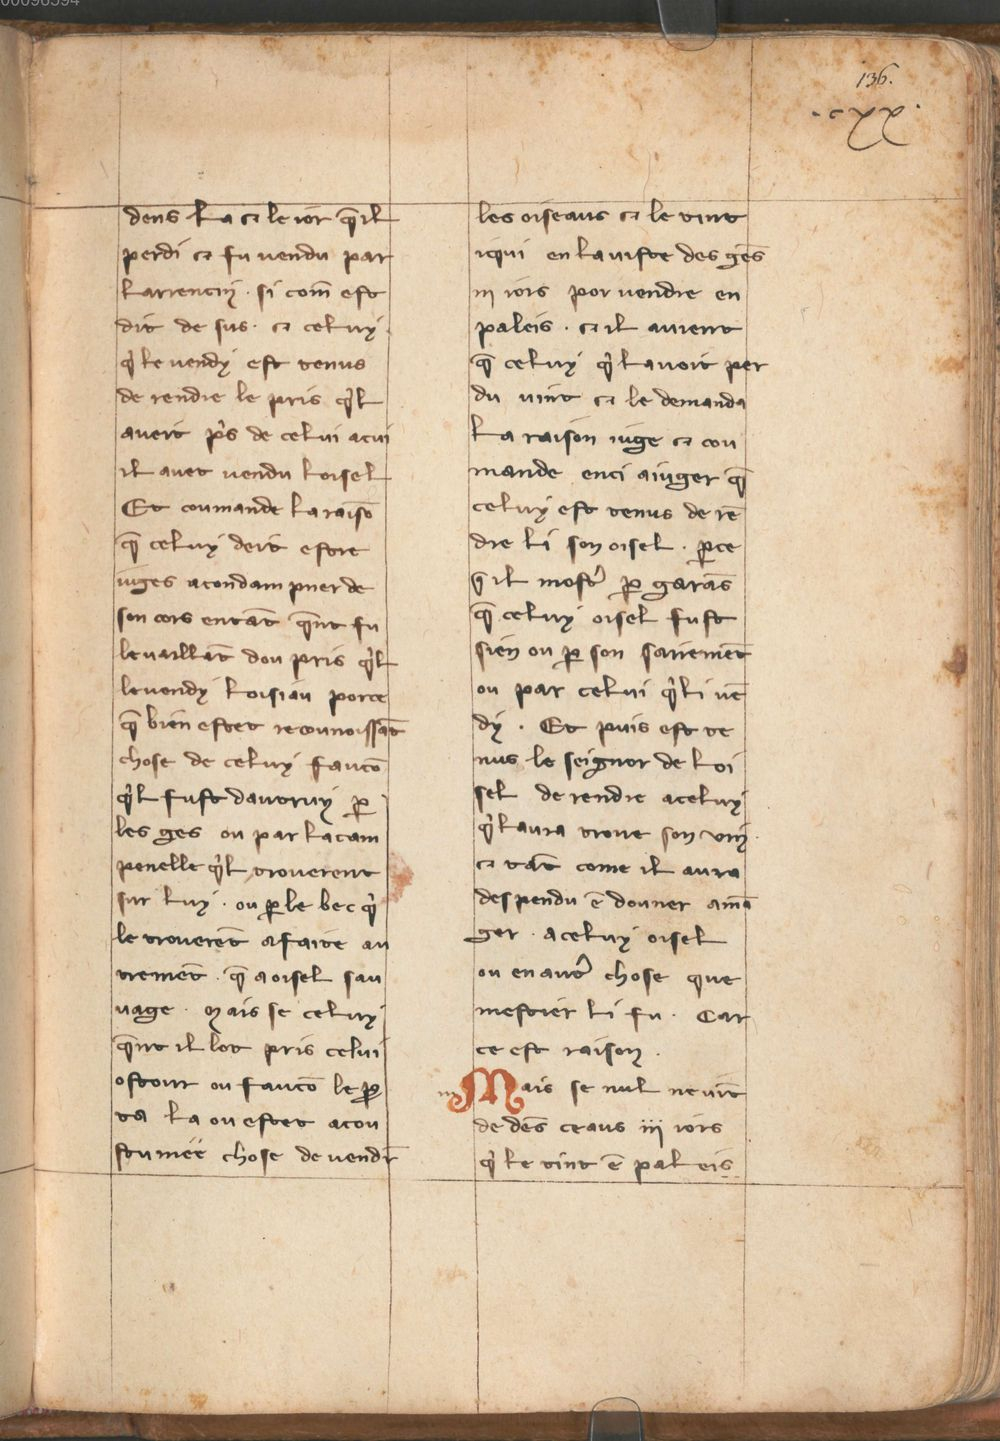 00096594
136.
.cxx.
dens la ⁊ le ior q̄ il
perdi ⁊ fu vendu par
larrenciṅ . si com̄ est
dit de sus . ⁊ celuy
qͥ le vendy est tenus
de rendre le pris qͥl
aveit pͥs de celui acui
il avet vendu loisel
Et coumande la raisō
q̄ celuy deit estre
iuges acondampner de
son cors entāt q̄nt fu
levaillāt dou pris qͥl
levendy loisiau porce
q̄ bien estet recounoissāt
chose de celuy faucō
qͥl fust dautruy ꝑ
les ges ou par lacam
penelle qͥl troverent
sur luy . ou ꝑ le bec qͥ
le troverēt afaite au
tremēt . q̄ a oisel sau
vage . Mais se celuy
q̄nt il lot pris celui
ostour ou faucō le ꝑ
ta la ou estet acou
stumee chose de vendr̄
les oiseaus ⁊ le tint
iqui en lauiste des gēs
iij iors por vendre en
paleis . ⁊ il avient
q̄ celuy qͥ lavoit per
du vint ⁊ le demanda
La raison iuge ⁊ cou
mande enci aiuger q̄
celuy est tenus de rē
dre li son oisel . ꝑce
q̄ il mostͬ ꝑ garās
q̄ celuy oisel fust
sien ou ꝑ son sairemēt
ou par celui qͥ li vē
dy . Et puis est te
nus le seignor de loi
sel de rendre aceluy
qͥ laura trove son vin
⁊ tāt come il aura
despendu ē douner amā
ger . aceluy oisel
ou en autͬ chose que
mestier li fu . Car
ce est raison .
Mais se nul ne vīt
de dēs ceaus iij iors
qͥ le tint ē paleis